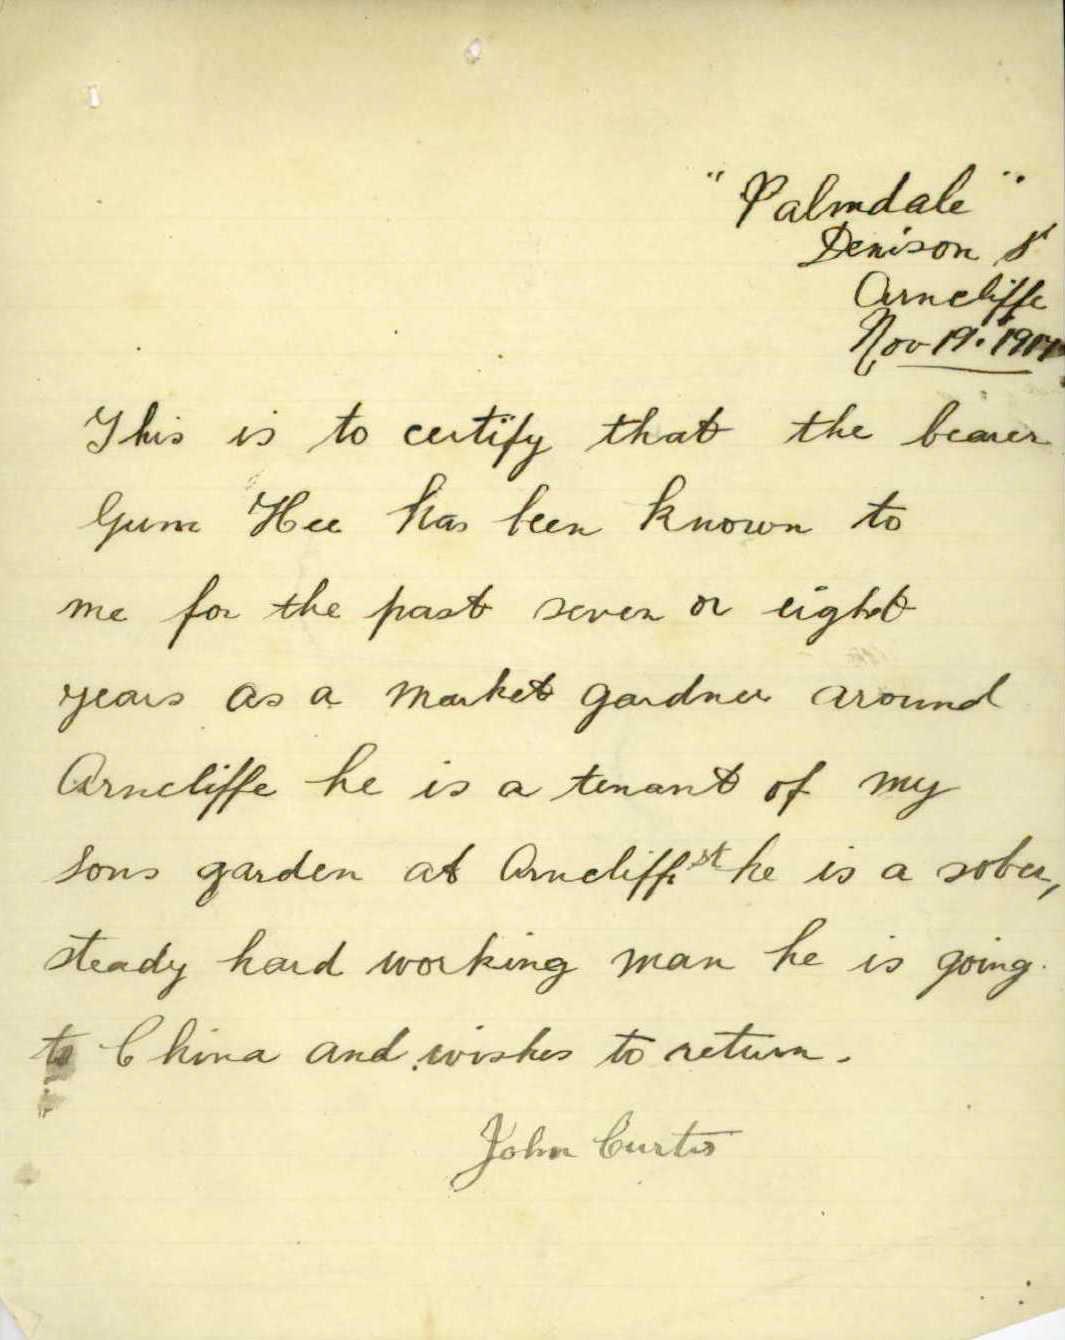 "Palmdale"
Denison St
Arncliffe
Nov 19.
This is to certify that the bearer
Gum Hee has been known to
me for the past seven or eight
years as a market gardner around
Arncliffe he is a tenant of my
sons garden at Arncliffe st he is a sober,
steady hard working man he is going
to China and wishes to return.
John Curtis